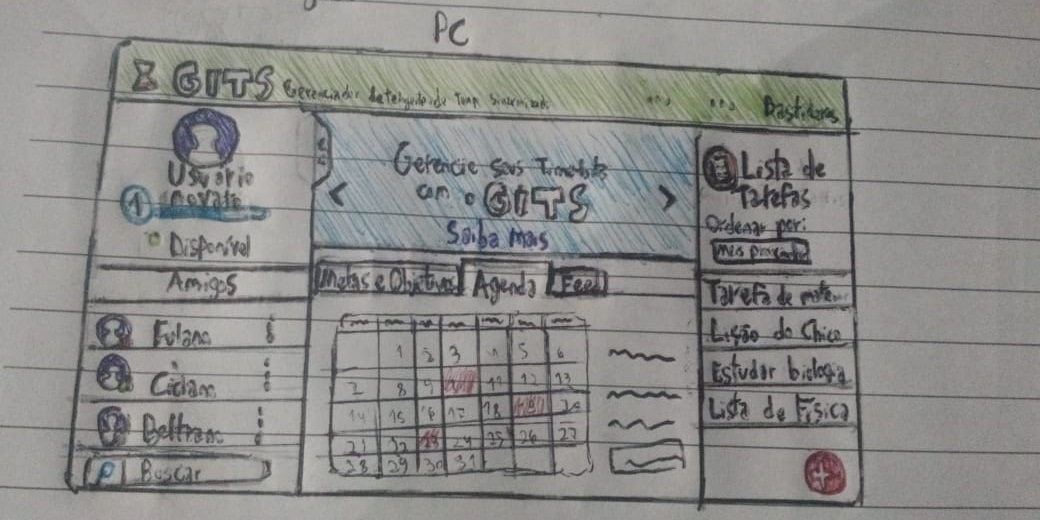 PC
GITS Gerenciador de Tempo
Bastidores
Usuário
novato
1
Disponível
Amigos
Fulano
Ciclano
Beltrano
Buscar
Gerencie seus
com o GITS
Saiba mais
Metas e Objetivos Agenda Feed
1 2 3 4 5 6
7 8 9 11 12 13
14 15 16 17 18 20
21 22 24 25 26 27
28 29 30 31
Lista de
Tarefas
Ordenar por:
Mais
Tarefa de
Lição do Chico
Estudar biologia
Lista de Física